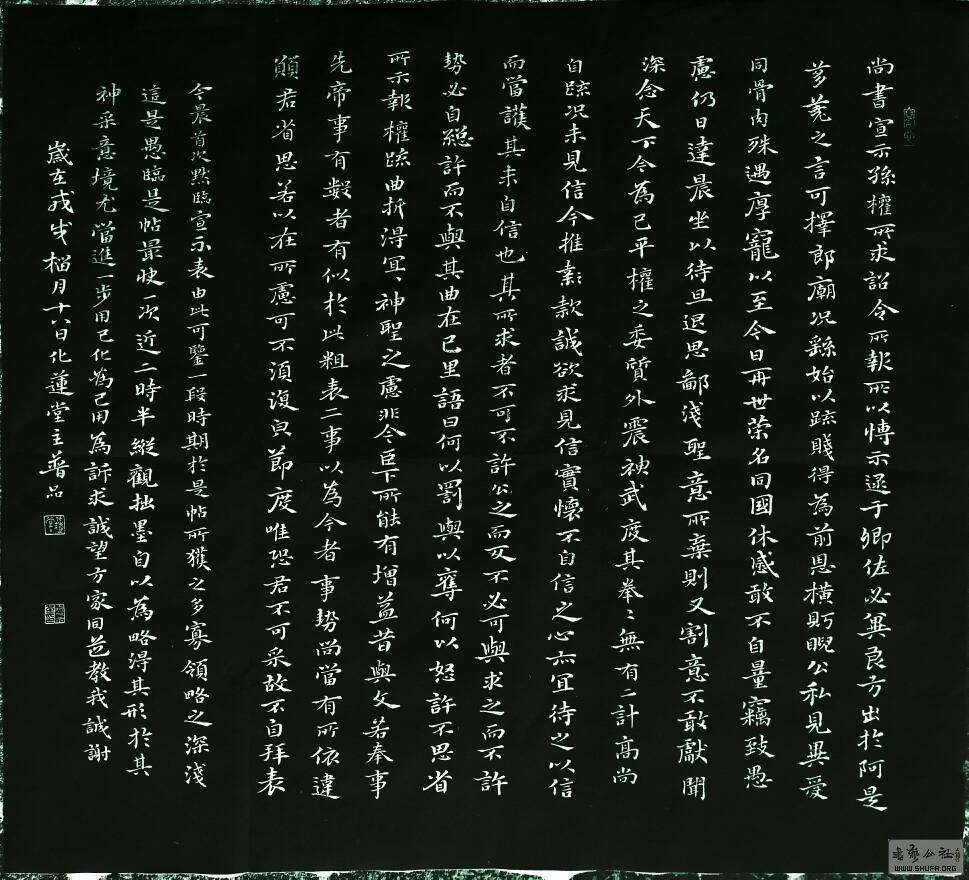 尚書宣示孫權所求詔令所報所以博示逮于卿佐必冀良方出於阿是
芻蕘之言可擇郎廟况繇始以疏賤得為前恩橫所睨公私見異愛
同骨肉殊遇厚寵以至今日再世榮名同國休慼敢不自量竊致愚
慮仍日達晨坐以待旦退思鄙淺聖意所棄則又割意不敢獻聞
深念天下今為已平權之委質外震神武度其拳〻無有二計高尚
自疏况未見信今推素款誠欲求見信實懷不自信之心亦宜待之以信
而當護其未自信也其所求者不可不許許之而反不必可與求之而不許
勢必自絕許而不與其曲在己里語曰何以罰與以奪何以怒許不思省
所示報權疏曲折得宜神聖之慮非今臣下所能有增益昔與文若奉事
先帝事有數者有似於此粗表二事以為今者事勢尚當有所依違
願君省思若以在所慮可不須復皃節度唯恐君不可采故不自拜表
今晨首次點臨宣示表由此可鑒一段時期於是帖所獲之多寡領略之深淺
這是愚臨是帖最快一次近二時半縱觀拙墨自以為略得其形於其
神采意境尤當進一步用己化為己用為訴求誠望方家同道教我誠謝
歲在戊戌榴月十八日化蓮堂主普品
書藝公社
WWW.SHUFA.ORG